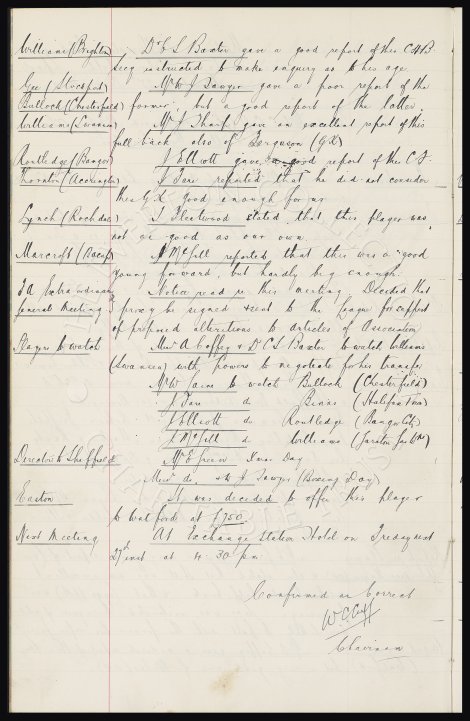 Williams (Brighton) Dr C S Baxter gave a good report of this C.H.B.
Secy instructed to make enquiry as to his age.
Gee (Stockport) Mr W J Sawyer gave a poor report of the
Bullock (Chesterfield) former, but a good report of the latter.
Williams (Swansea) Mr J Sharp gave an excellent report of this
full back also of Ferguson (G.K)
Routledge (Bangor) J Elliott gave a good report of this C.F.
Thornton (Accrington) J Fare reported that he did not consider
this G.K. good enough for us
Lynch (Rochdale) T Fleetwood stated that this player was
not as good as our own.
Marcroft (Bacup) N McGill reported that this was a good
young forward, but hardly big enough.
FA Extraordinary Notice read re this meeting. Decided that
General Meeting proxy be signed & sent to the League for support
of proposed alterations to articles of Association
Players to watch Messrs A Coffey & Dr C S Baxter to watch Williams
(Swansea) with powers to negotiate for his transfer
Mr W to watch Bullock (Chesterfield)
J Fare do Binns (Halifax Town)
J Elliott do Routledge (Bangor City)
N McGill do Williams
Directors to Sheffield Mr E Green Xmas Day
Messrs do & W J Sawyer (Boxing Day)
Easton It was decided to offer this player
to Watford at £750.
Next Meeting At Exchange Station Hotel on Friday next
27th inst at 4.30 pm
Confirmed as Correct
W.C. Cuff
Chairman